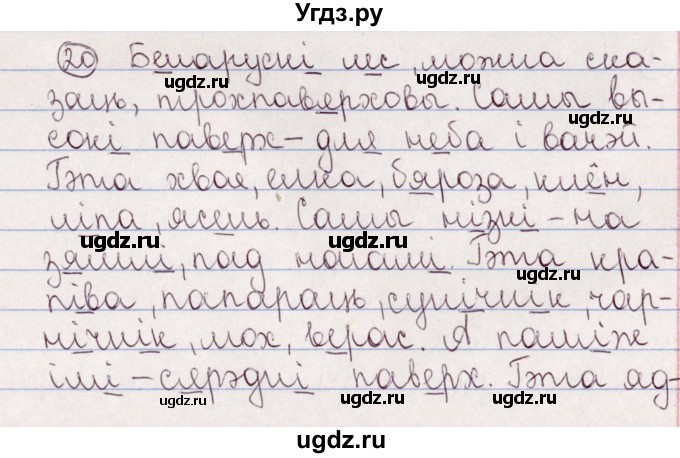 Угдз.ру
20 Беларускі лес, можна ска-
заць, трохпавярховы. Самы вы-
сокі паверх – для неба і вачэй.
Гэта хвая, елка, бяроза, клён,
ліпа, ясень. Самы нізкі – на
зямлі, пад нагамі. Гэта кра-
піва, папараць, сунічнік, чар-
нічнік, мох, верас. А паміж
імі – сярэдні паверх. Гэта ад-
ugdz.ru
ugdz.ru
ugdz.ru
ugdz.ru
ugdz.ru
ugdz.ru
ugdz.ru
ugdz.ru
ugdz.ru
ugdz.ru